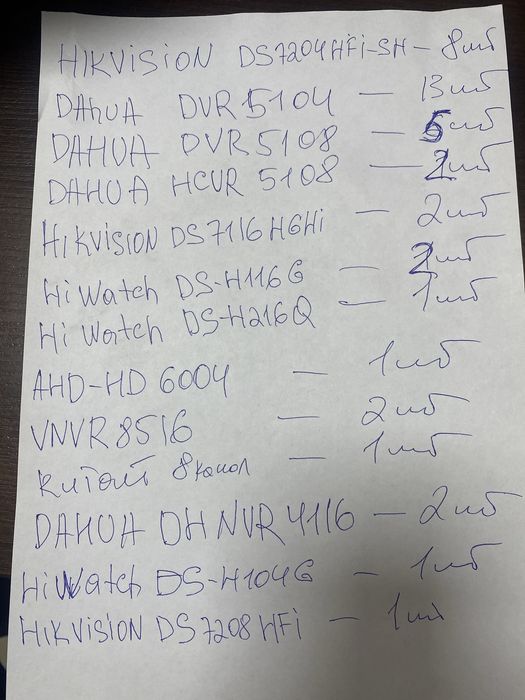 HIKVISION DS7204HFi-SH - 8шт
DAhUA DVR 5104 - 13шт
DAHUA DVR 5108 - 5шт
DAHUA HCVR 5108 - 2шт
HIKVISION DS7116H6Hi - 2шт
Hi Watch DS-H116G - 2шт
Hi Watch DS-H216Q - 1шт
AHD-HD 6004 - 1шт
VNVR 8516 - 2шт
Китай 8канал - 1шт
DAHUA DH NVR 4116 - 2шт
Hi Watch DS-H104G - 1шт
HIKVISION DS7208HFi - 1шт